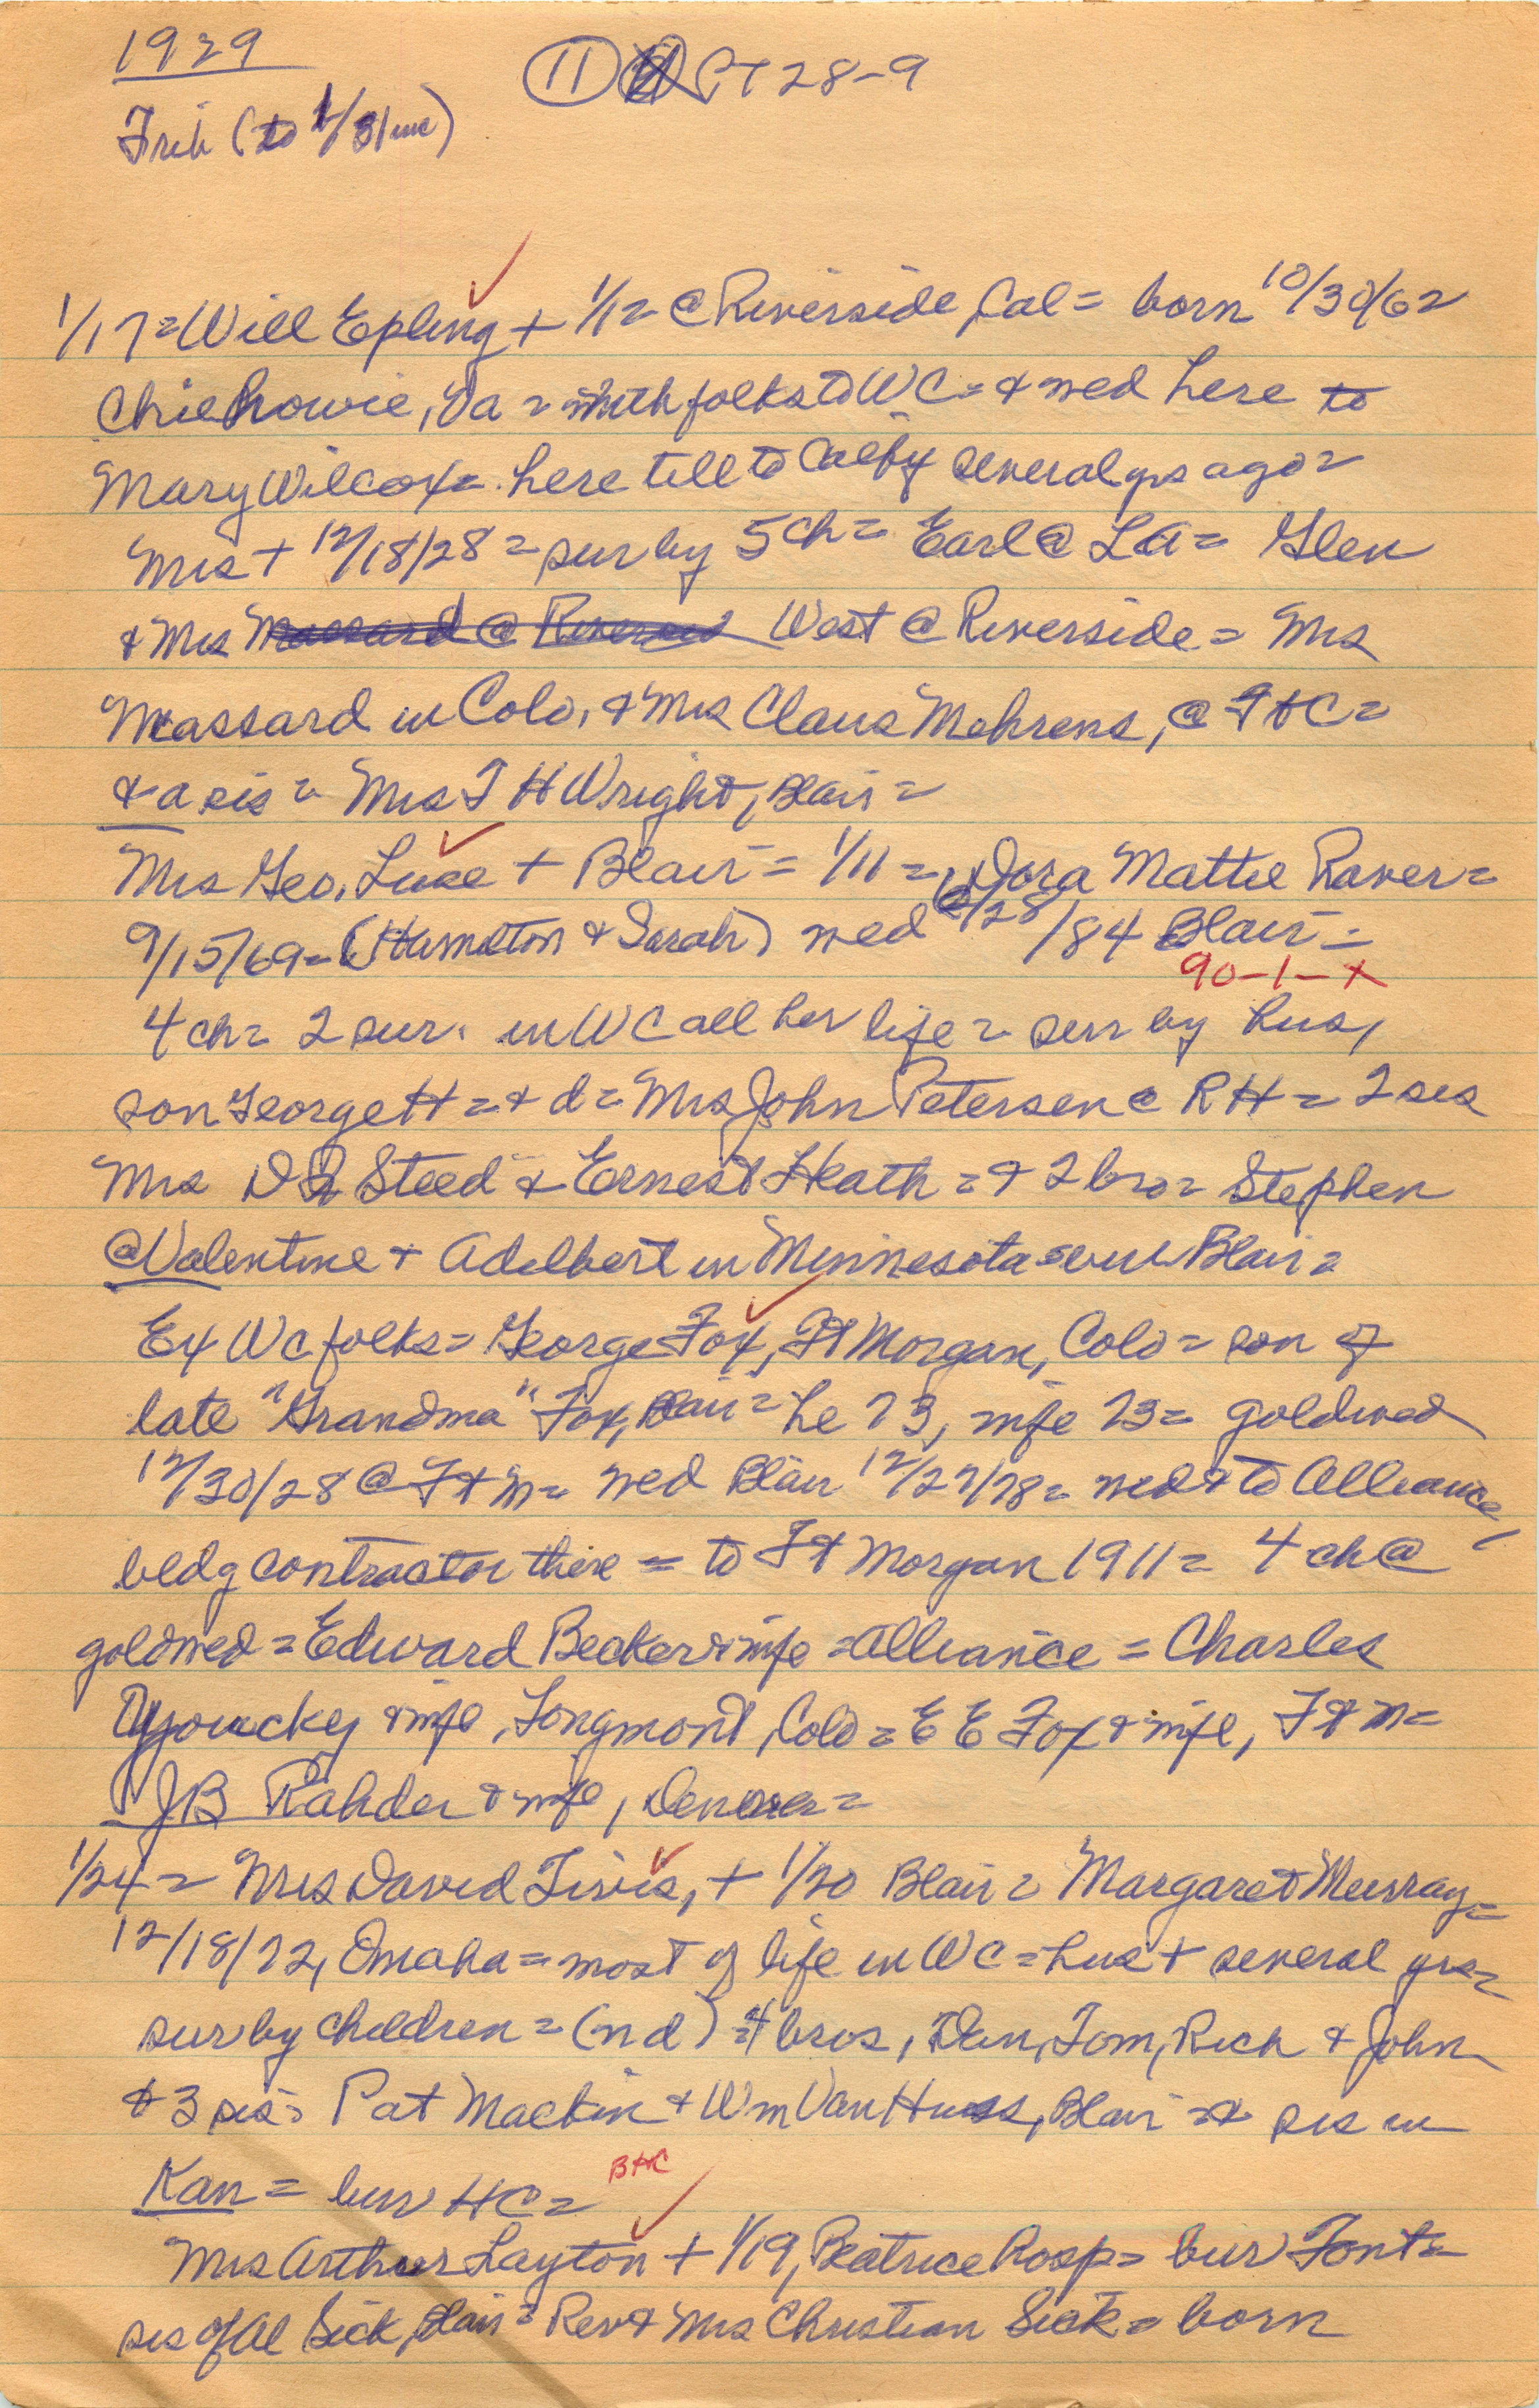 1929
(11) PT 28-9
Trib (to 1/31 inc)
1/17 = Will Epling + 1/12 @ Riverside, Cal = born 10/30/62
Chilhowie, Va = with folks to WC = & wed here to
Mary Wilcox = here till to Calif several yrs ago =
Mrs + 12/18/28 = sur by 5 ch = Earl @ LA = Glen
& Mrs West @ Riverside = Mrs
Massard in Colo, & Mrs Claus Mehrens, @ Ft C =
& a sis = Mrs T H Wright, Blair =
Mrs Geo. Luse + Blair = 1/11 = Dora Mattie Raver =
9/15/69 = (Hamilton & Sarah) wed /28/84 Blair =
90-1-+
4 ch = 2 sur. in WC all her life = surr by hus,
son George H = & d = Mrs John Petersen @ RH = 2 sis
Mrs D Steed & Ernest Heath = & 2 bro = Stephen
@ Valentine & Adelbert in Minnesota = bur Blair =
Ex WC folks = George Fox, Ft Morgan, Colo = son of
late "Grandma" Fox, Blair = he 73, wife 73 = goldwed
12/30/28 @ Ft M = wed Blair 12/27/78 = wed & to Alliance,
bldg contractor there = to Ft Morgan 1911 = 4 ch @
goldwed = Edward Becker & wife = Alliance = Charles
& wife, Longmont, Colo = E E Fox & wife, Ft M =
JB Rahder & wife, Denver =
1/24 = Mrs David Tivis, + 1/20 Blair = Margaret Murray =
12/18/72, Omaha = most of life in WC = hus + several yrs =
sur by children = (nd) = 4 bros, Dan, Tom, Rich & John
& 3 sis = Pat Mackin & Wm Van Huss, Blair = & sis in
Kan = bur HC = BHC
Mrs Arthur Layton + 1/19, Beatrice Hosp = bur Font =
sis of Al Sick, Blair = Rev & Mrs Christian Sick = born